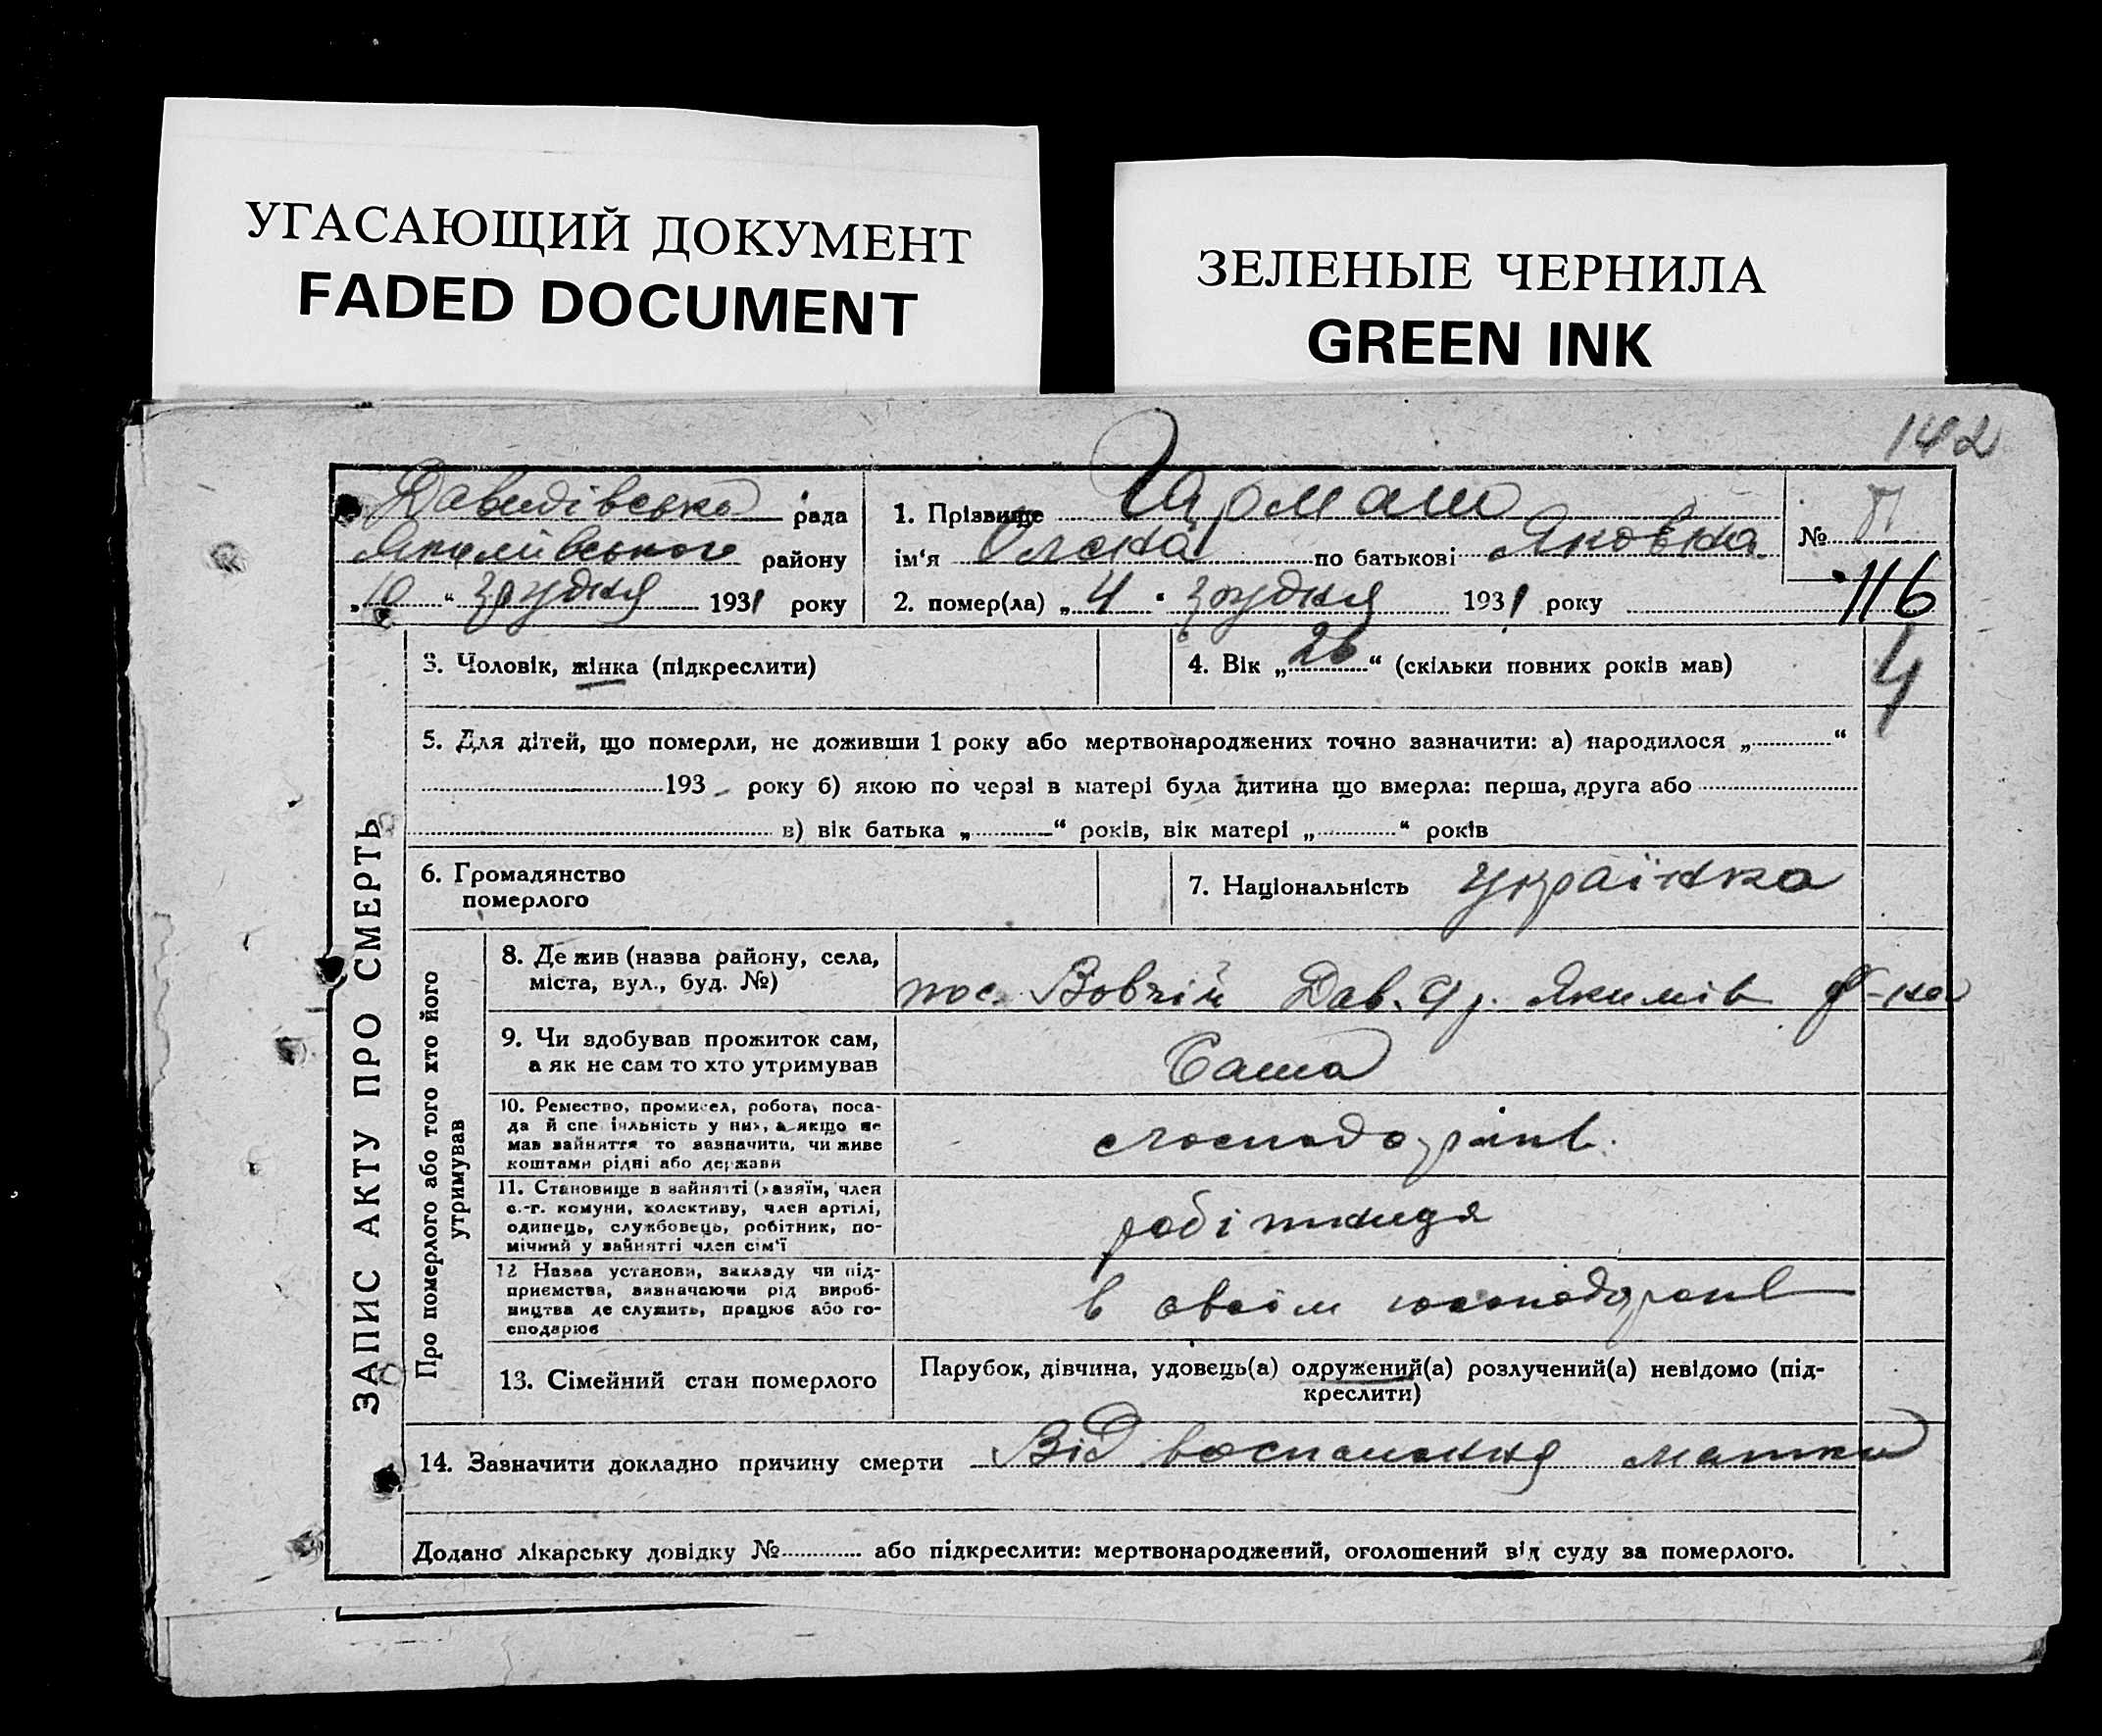 УГАСАЮЩИЙ ДОКУМЕНТ
FADED DOCUMENT
ЗЕЛЕНЫЕ ЧЕРНИЛА
GREEN INK
142
Давидівська рада
Якимівського району
„10“ грудня 1931 року
1. Прізвище Гармаш
ім'я Олена по батькові Яковна
2. помер(ла) „4“ грудня 1931 року
№
116
4
ЗАПИС АКТУ ПРО СМЕРТЬ
3. Чоловік, жінка (підкреслити)
4. Вік „26“ (скільки повних років мав)
5. Для дітей, що померли, не доживши 1 року або мертвонароджених точно зазначити: а) народилося „............“
193 року б) якою по черзі в матері була дитина що вмерла: перша, друга або
в) вік батька „............“ років, вік матері „............“ років
6. Громадянство
померлого
7. Національність українка
Про померлого або того хто його
утримував
8. Де жив (назва району, село,
міста, вул., буд. №)
пос. Вовчій Дав. Якимів р-на
9. Чи здобував прожиток сам,
а як не сам то хто утримував
Сама
10. Ремество, промисел, робота, поса-
да й спеціяльність у них, а якщо не
мав зайняття то зазначити, чи живе
коштами рідні або держави
11. Становище в зайнятті (хазяїн, член
с.-г. комуни, колективу, член артілі,
одинець, службовець, робітник, по-
мічний у зайнятті член сім'ї
робітниця
12 Назва установи, закладу чи під-
приємства, визначаючи рід вироб-
ництва де служить, працює або го-
сподарює
в своїм
13. Сімейний стан померлого
Парубок, дівчина, удовець(а) одружений(а) розлучений(а) невідомо (під-
креслити)
14. Зазначити докладно причину смерти Від воспаления матки
Додано лікарську довідку №............ або підкреслити: мертвонароджений, оголошений від суду за померлого.